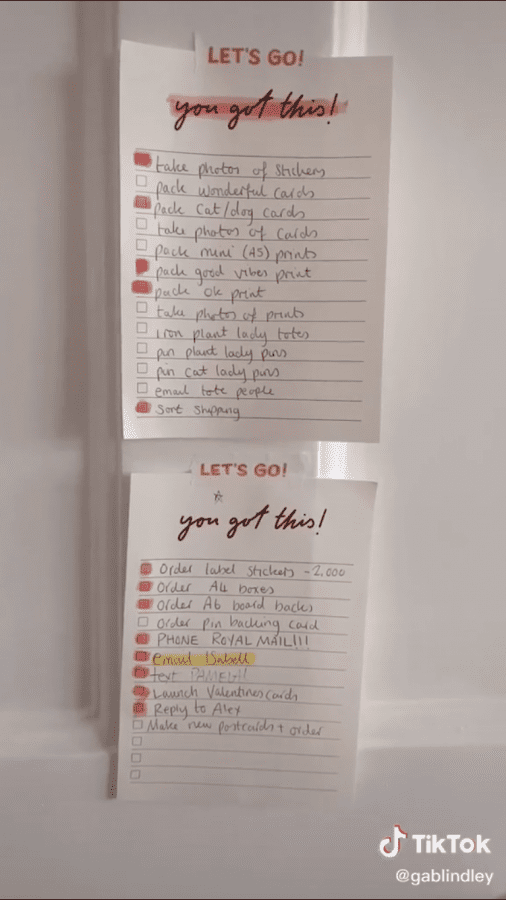 LET'S GO!
you got this!
take photos of stickers
pack wonderful cards
pack cat/dog cards
take photos of cards
pack mini (A5) prints
pack good vibes print
pack ok print
take photos of prints
Iron plant lady totes
pin plant lady pins
pin cat lady pins
email tote people
Sort Shipping
LET'S GO!
you got this!
Order label stickers - 2,000
Order A4 boxes
Order A6 board backs
Order pin backing card
PHONE ROYAL MAIL!!!
email Isabell
text
Launch Valentines cards
Reply to Alex
Make new postcards + order
TikTok
@gablindley